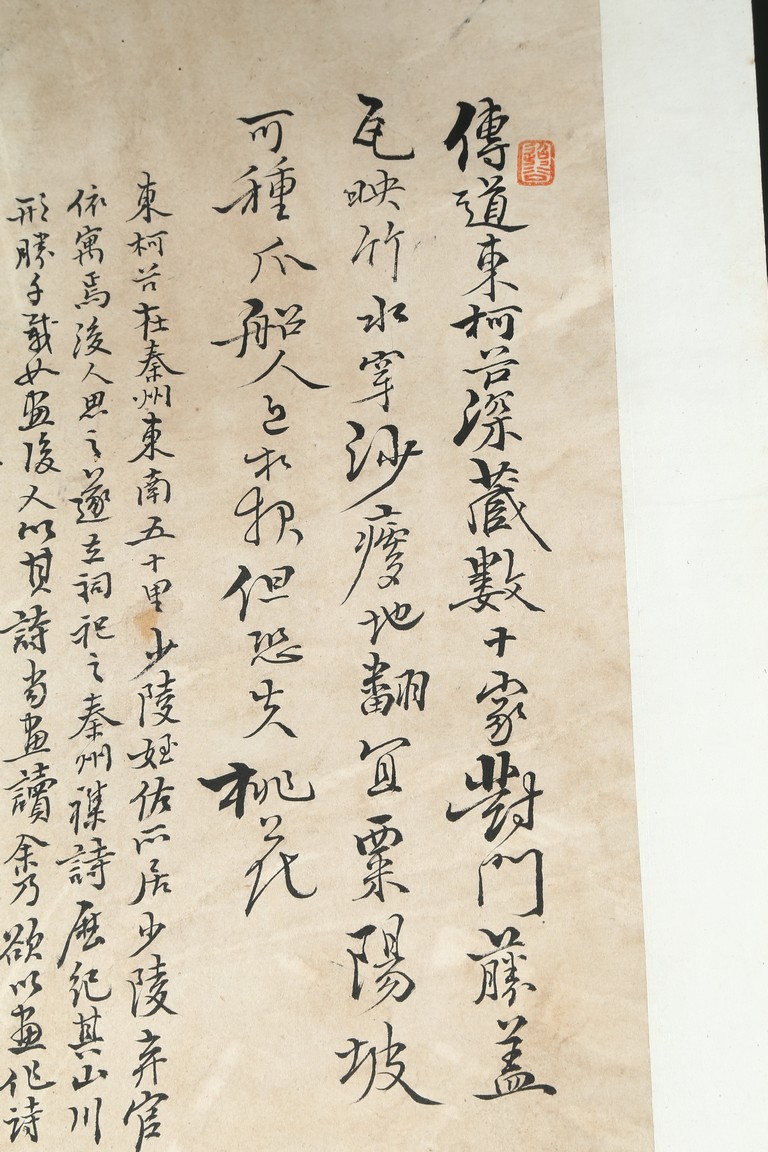 傳道東柯谷深藏數十家對門藤蓋
瓦映竹水穿沙瘦地翻宜粟陽坡
可種瓜船人近相報但恐失桃花
東柯谷在秦州東南五十里少陵姪佐所居少陵弃官
依寓焉後人思之遂立祠祀之秦州襍詩歷紀其山川
形勝千載如畫後人以其詩當畫讀余乃欲以畫作詩